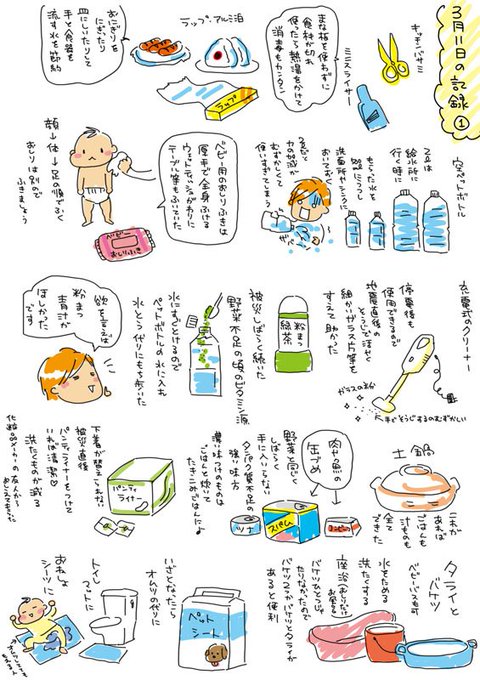 3月11日の記録①
キッチンバサミ
ミニスライサー
まな板を使わずに
食材が切れ
使たら熱湯をかけて
消毒もカンタン
ラップ、アルミ泊
ラップ
おにぎりを
にぎったり
皿にしいたりして
手と食器を
流す水を節約
空ペットボトル
2ℓは
給水所に
行く時に
もらった水を
500mlにうつし
洗面所やシンクに
おいておく
2ℓだと
力の加減が
むずかしくて
使いすぎてしまう
ザバー
ベビー用のおしりふきは
厚手で全身ふける
ウェットティッシュがわりに
テーブル等もふいていた
ベビー
おしりふき
顔→体→足の順でふく
おしりは別ので
ふきましょう
充電式のクリーナー
停電後も
使用できるので
地震直後の
そうじで活やく
細かいガラス片等を
すえて助かった
ガラスの粉
片手でそうじするのむずかしい
粉まっ
緑茶
被災しばらく続いた
野菜不足の頃のビタミン源
水にすぐとけるので
ペットボトルの水に入れ
水とう代りにもち歩いた
欲を言えば
粉まっ
青汁が
ほしかった
です
土鍋
これが
あれば
ごはんも
汁ものも
全て
できた
肉や魚の
缶づめ
野菜と同じく
しばらく
手に入りづらい
タンパク質不足の
強い味方
濃い味つけのものは
ごはんと炊いて
たきこみごはんによ
ツナ
スパム
コンビーフ
パンティ
ライナー
下着が替えられない
被災直後
パンティライナーをつけて
いれば清潔♡
洗たくものが減る
化粧品メーカーの友人から
おしえてもらった
タライと
バケツ
ベビーバスも可
水をためる
洗たくする
座浴(おしりだけ
お風呂)する
バケツひとつじゃ
たりなかったので
バケツ2つかバケツとタライが
あると便利
ペット
シート
いざとなったら
オムツの代りに
トイレ
マットに
おねしょ
シーツに